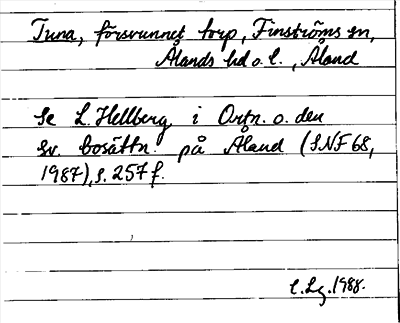 Tuna, försvunnet torp, Finströms sn,
Ålands hd o. l., Åland
Se L. Hellberg i Ortn. o. den
sv. bosättn. på Åland (SNF 68,
1987), s. 257 f.
C. Lg. 1988.